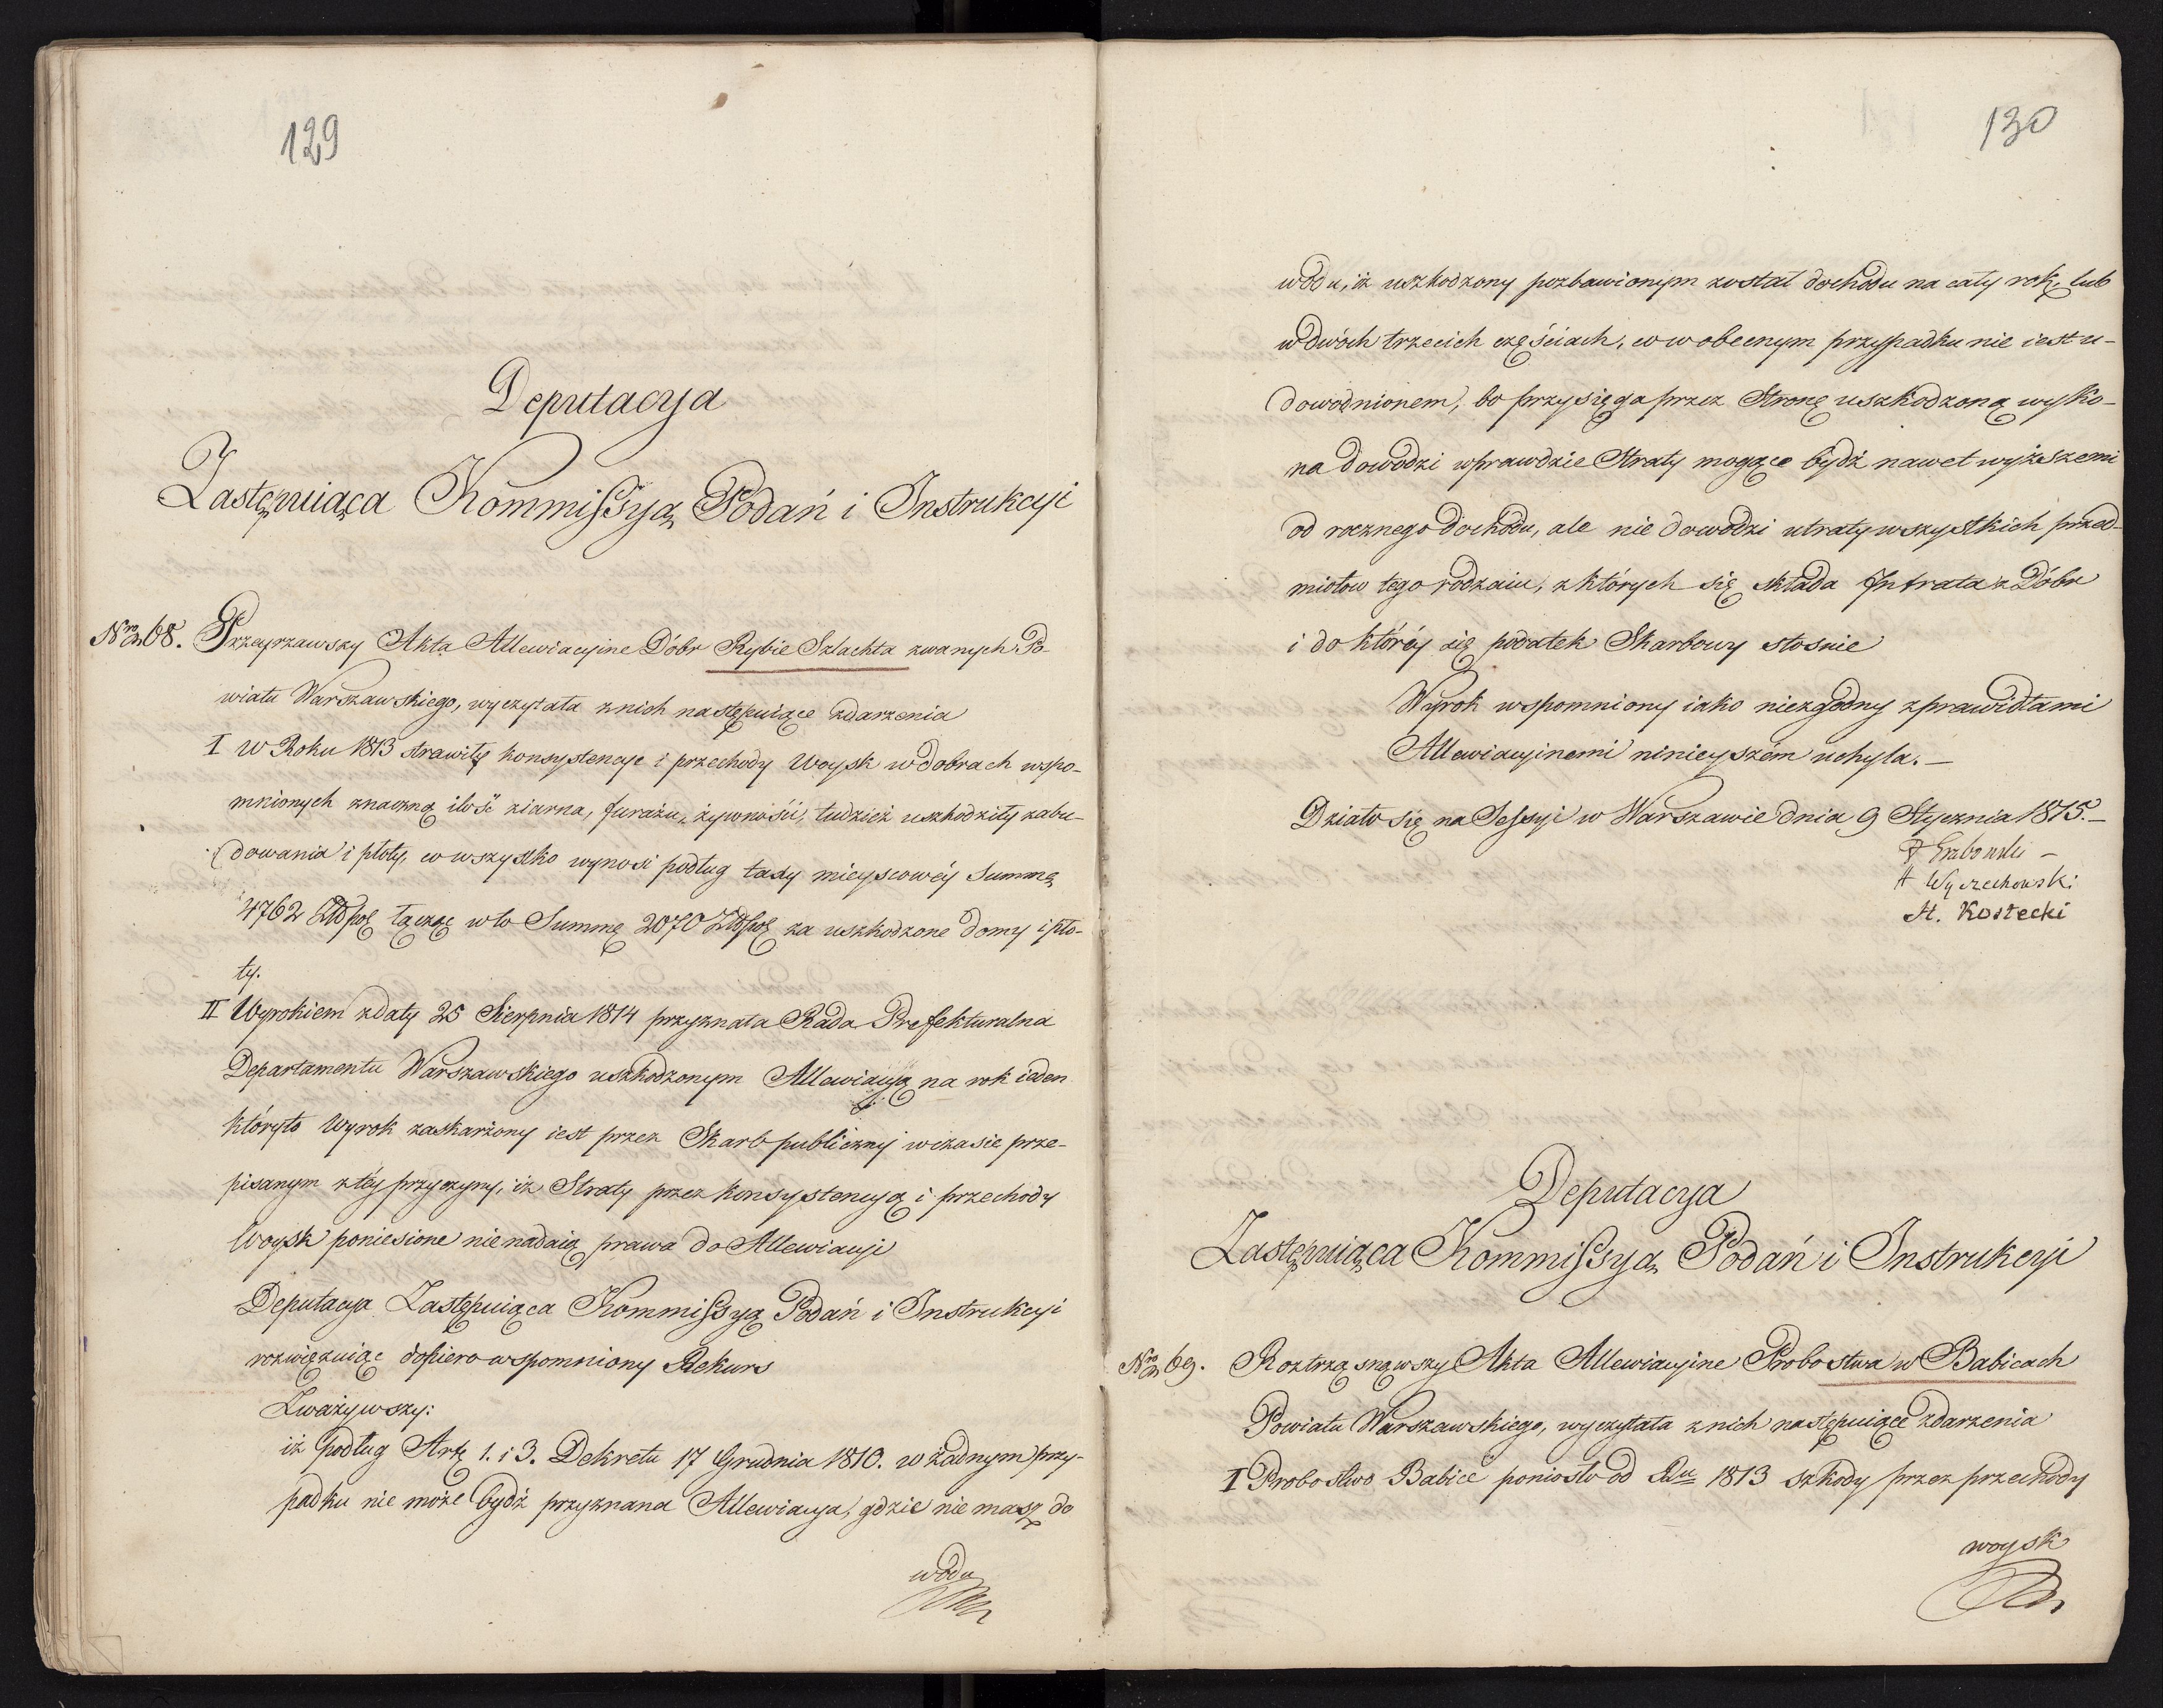 129
Deputacya
Zastępuiąca Kommissyą Podań i Instrukcyi
Nro 68. Przeyrzawszy Akta Allewiacyine Dóbr Rybie Szlachta zwanych Po-
wiatu Warszawskiego, wyczytała z nich następuiące zdarzenia
I w Roku 1813 strawiły konsystencye i przechody Woysk w dobrach wspo-
mnionych znaczną ilość ziarna, furażu, żywności, tudzież uszkodziły zabu-
dowania i płoty, co wszystko wynosi podług taxy mieyscowéy Summę
4762 Złłpol łącząc w to Summę 2070 Złłpol za uszkodzone domy i pło-
ty.
II Wyrokiem z daty 25 Sierpnia 1814 przyznała Rada Prefekturalna
Departamentu Warszawskiego uszkodzonym Allewiacyą na rok ieden
któryto Wyrok zaskarżony iest przez Skarb publiczny w czasie prze-
pisanym z téy przyczyny, iż Straty przez konsystencyą i przechody
Woysk poniesione nie nadaią prawa do Allewiacyi
Deputacya Zastępuiąca Kommissyą Podań i Instrukcyi
rozwięzuiąc dopiero wspomniony Rekurs
Zważywszy:
iż podług Art. 1. i 3. Dekretu 17 Grudnia 1810. w żadnym przy-
padku nie może bydź przyznana Allewiacya, gdzie nie masz do
wodu
130
wodu, iż uszkodzony pozbawionym został dochodu na cały rok, lub
w dwóch trzecich częściach, co w obecnym przypadku nie iest u-
dowodnionem, bo przysięga przez Stronę uszkodzoną wyko-
na dowodzi wprawdzie Straty mogące bydź nawet wyższemi
od rocznego dochodu, ale nie dowodzi utraty wszystkich przed-
miotów tego rodzaiu, z których się składa Intrata z Dóbr
i do któréy się podatek Skarbowy stosuie
Wyrok wspomniony iako niezgodny z prawidłami
Allewiacyinemi ninieyszém uchyla. —
Działo się na Sessyi w Warszawie dnia 9 Stycznia 1815. —
F Grabowski —
A Wyczechowski
A. Kostecki
Deputacya
Zastępuiąca Kommissyą Podań i Instrukcyi
Nro 69. Roztrząsnąwszy Akta Allewiacyine Probostwa w Babicach
Powiatu Warszawskiego, wyczytała z nich następuiące zdarzenia
I Probostwo Babice poniosło od Ru 1813 szkody przez przechody
woysk